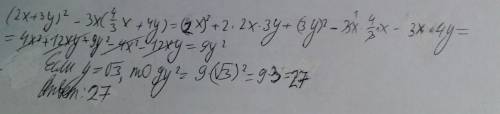 (2x+3y)² - 3x(4/3x + 4y) = (2x)² + 2·2x·3y + (3y)² - 3x·4/3x - 3x·4y =
= 4x² + 12xy + 9y² - 4x² - 12xy = 9y²
Если y = √3, то 9y² = 9·(√3)² = 9·3 = 27
Ответ: 27